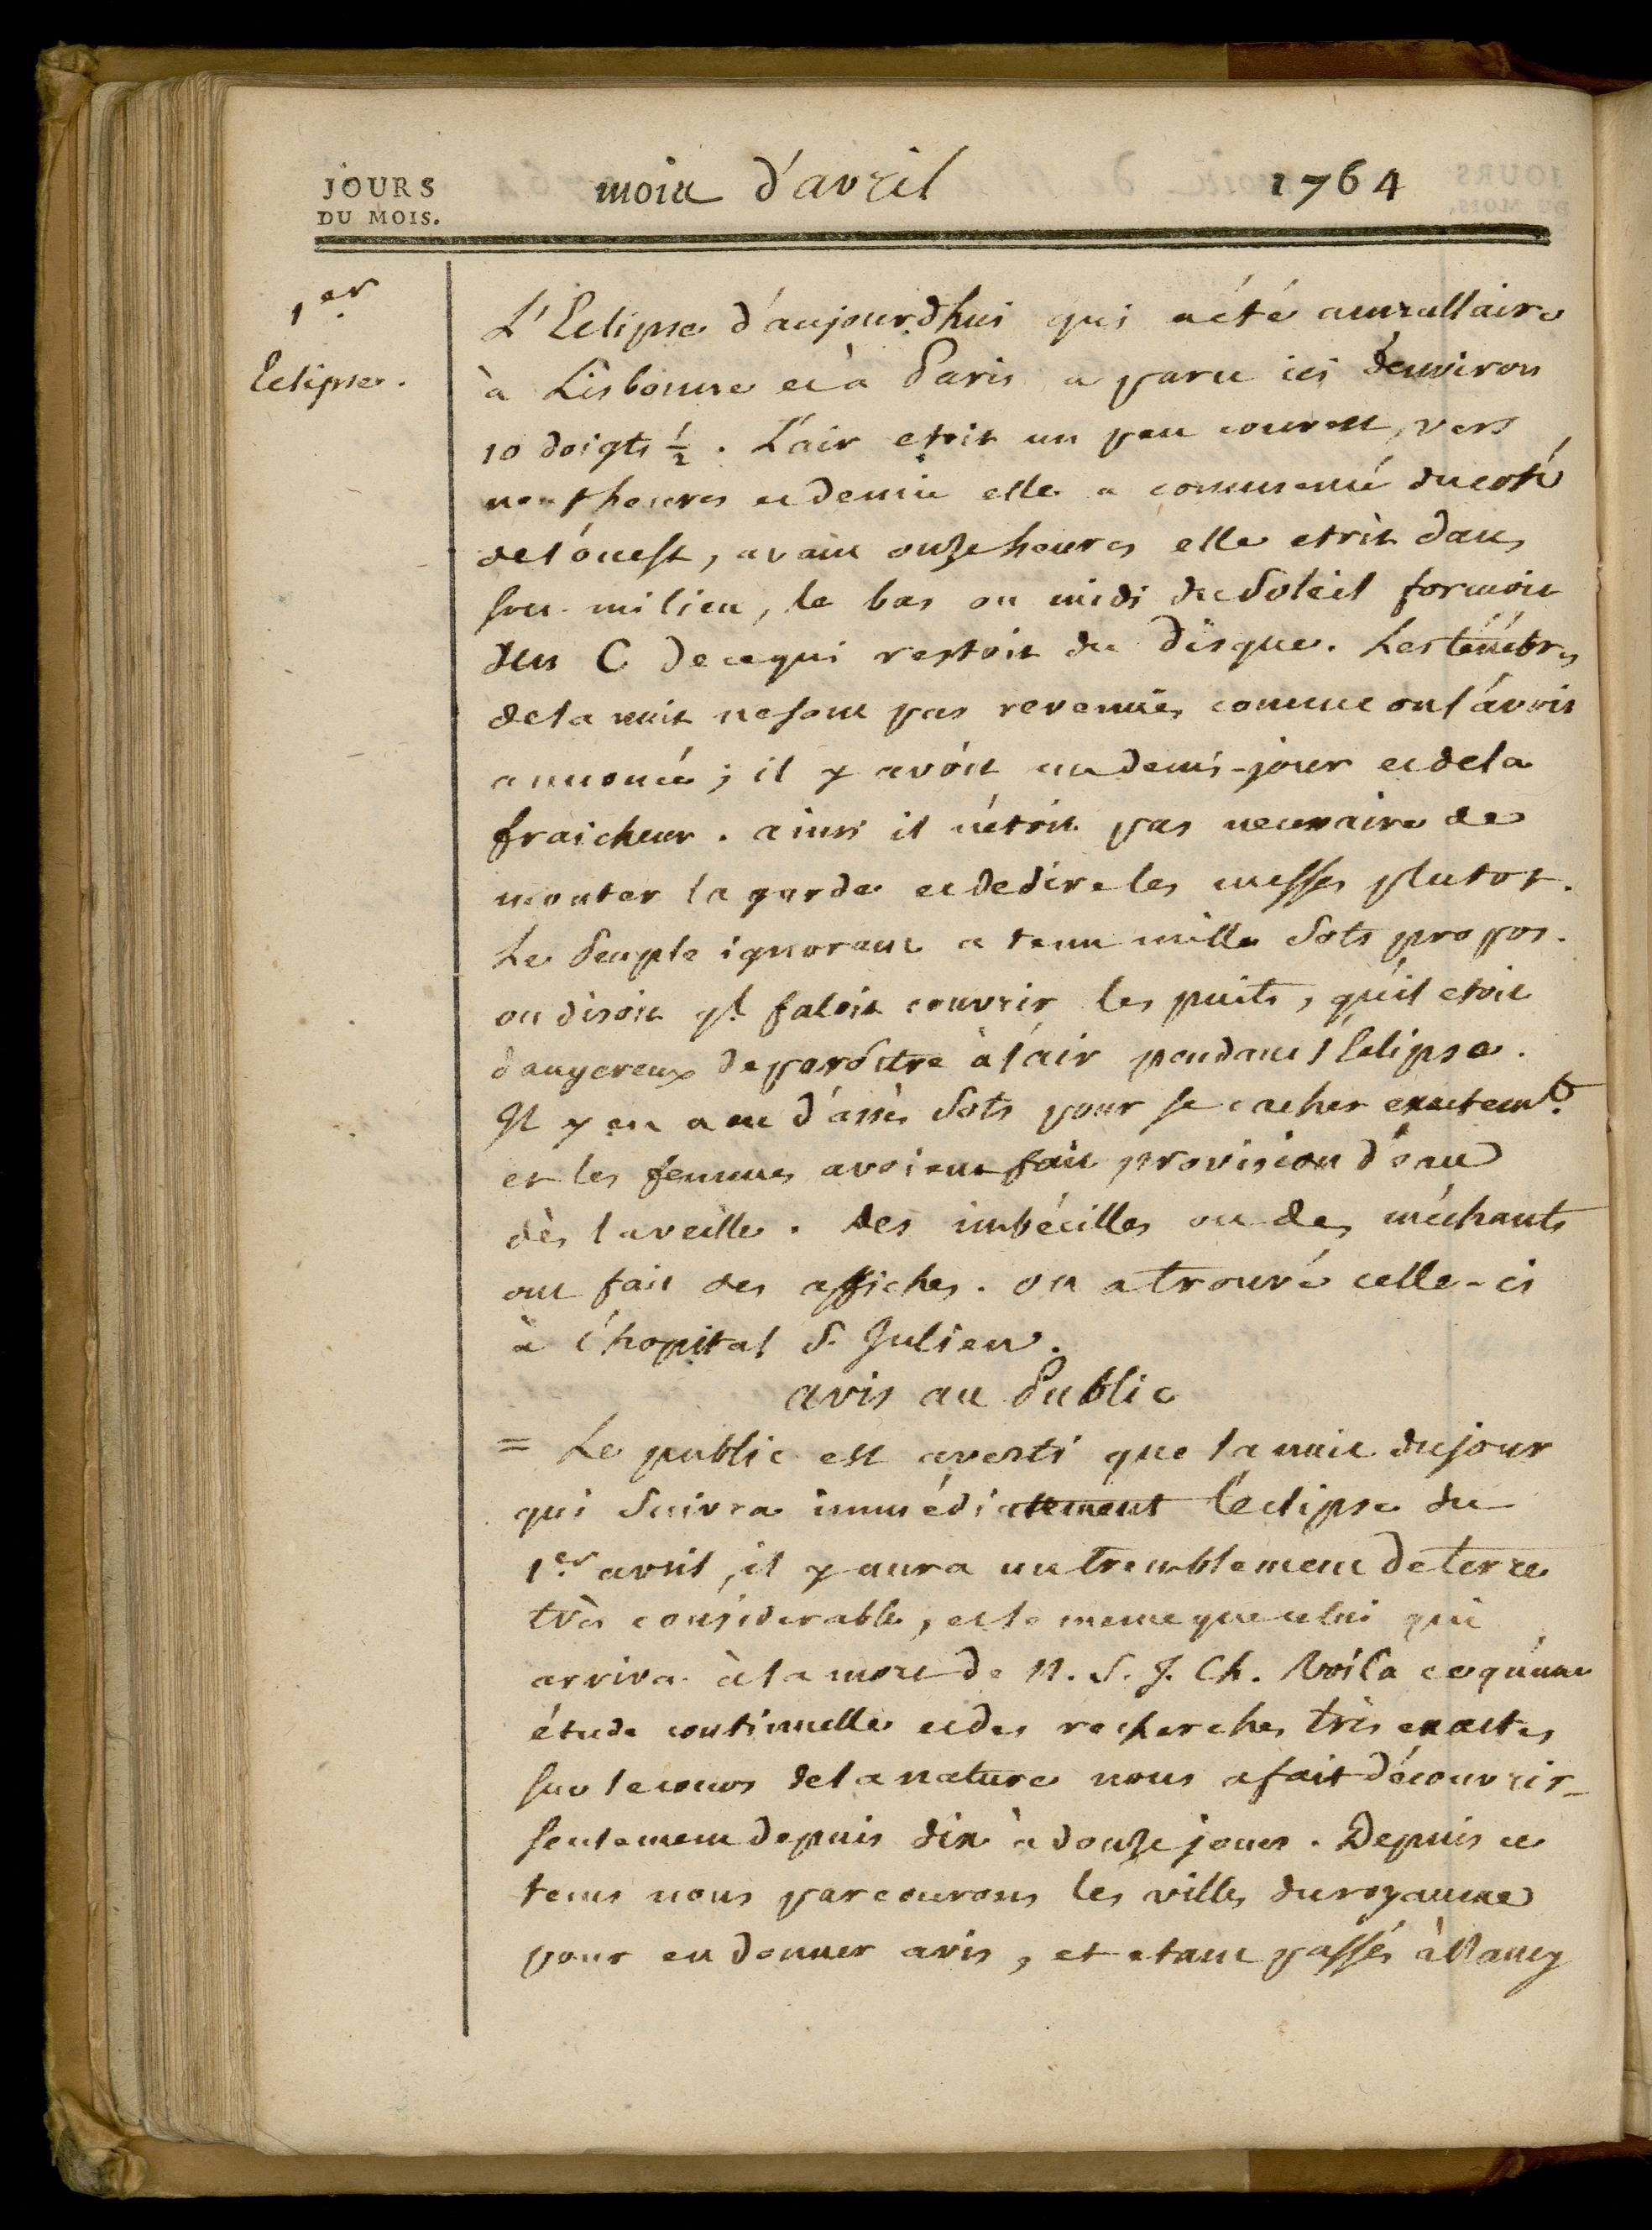 JOURS
DU MOIS.
mois d'avril
1764
1er
Eclipse.
L'Eclipse d'aujourdhui qui a été annullaire
à Lisbonne et à Paris a paru ici d'environ
10 doigts ½. L'air etoit un peu couvert, vers
neuf heures et demie elle a commencé du coté
de l'ouest, avant onze heures elle etoit dans
son milieu, le bas ou midi du Soleil formoit
un C de ce qui restoit du disque. Les ténèbres
de la nuit ne sont pas revenuës comme on l'avoit
annoncé; il y avoit un demi-jour et de la
fraicheur. ainsi il n'étoit pas necessaire de
monter la garde et de dire les messes plutot.
Le Peuple ignorant a tenu mille Sots propos.
on disoit ql faloit couvrir les puits, qu'il etoit
dangereux de paroitre à l'air pendant l'Eclipse.
Il y en a eu d'assès Sots pour se cacher exactemt.
et les femmes avoient fait provision d'eau
dès la veille. Des imbécilles ou des méchants
ont fait des affiches. on a trouvé celle-ci
à l'hopital S. Julien.
avis au Public
= Le public est averti que la nuit du jour
qui Suivra immédiatement l'eclipse du
1er avril, il y aura un tremblement de terre
très considerable, et le meme que celui qui
arriva à la mort de N. S. J. Ch. Voila ce qu'une
étude continuelle et des recherches très exactes
sur le cours de la nature nous a fait découvrir
seulement depuis dix à douze jours. Depuis ce
tems nous parcourons les villes du royaume
pour en donner avis, et etant passés à Nancy